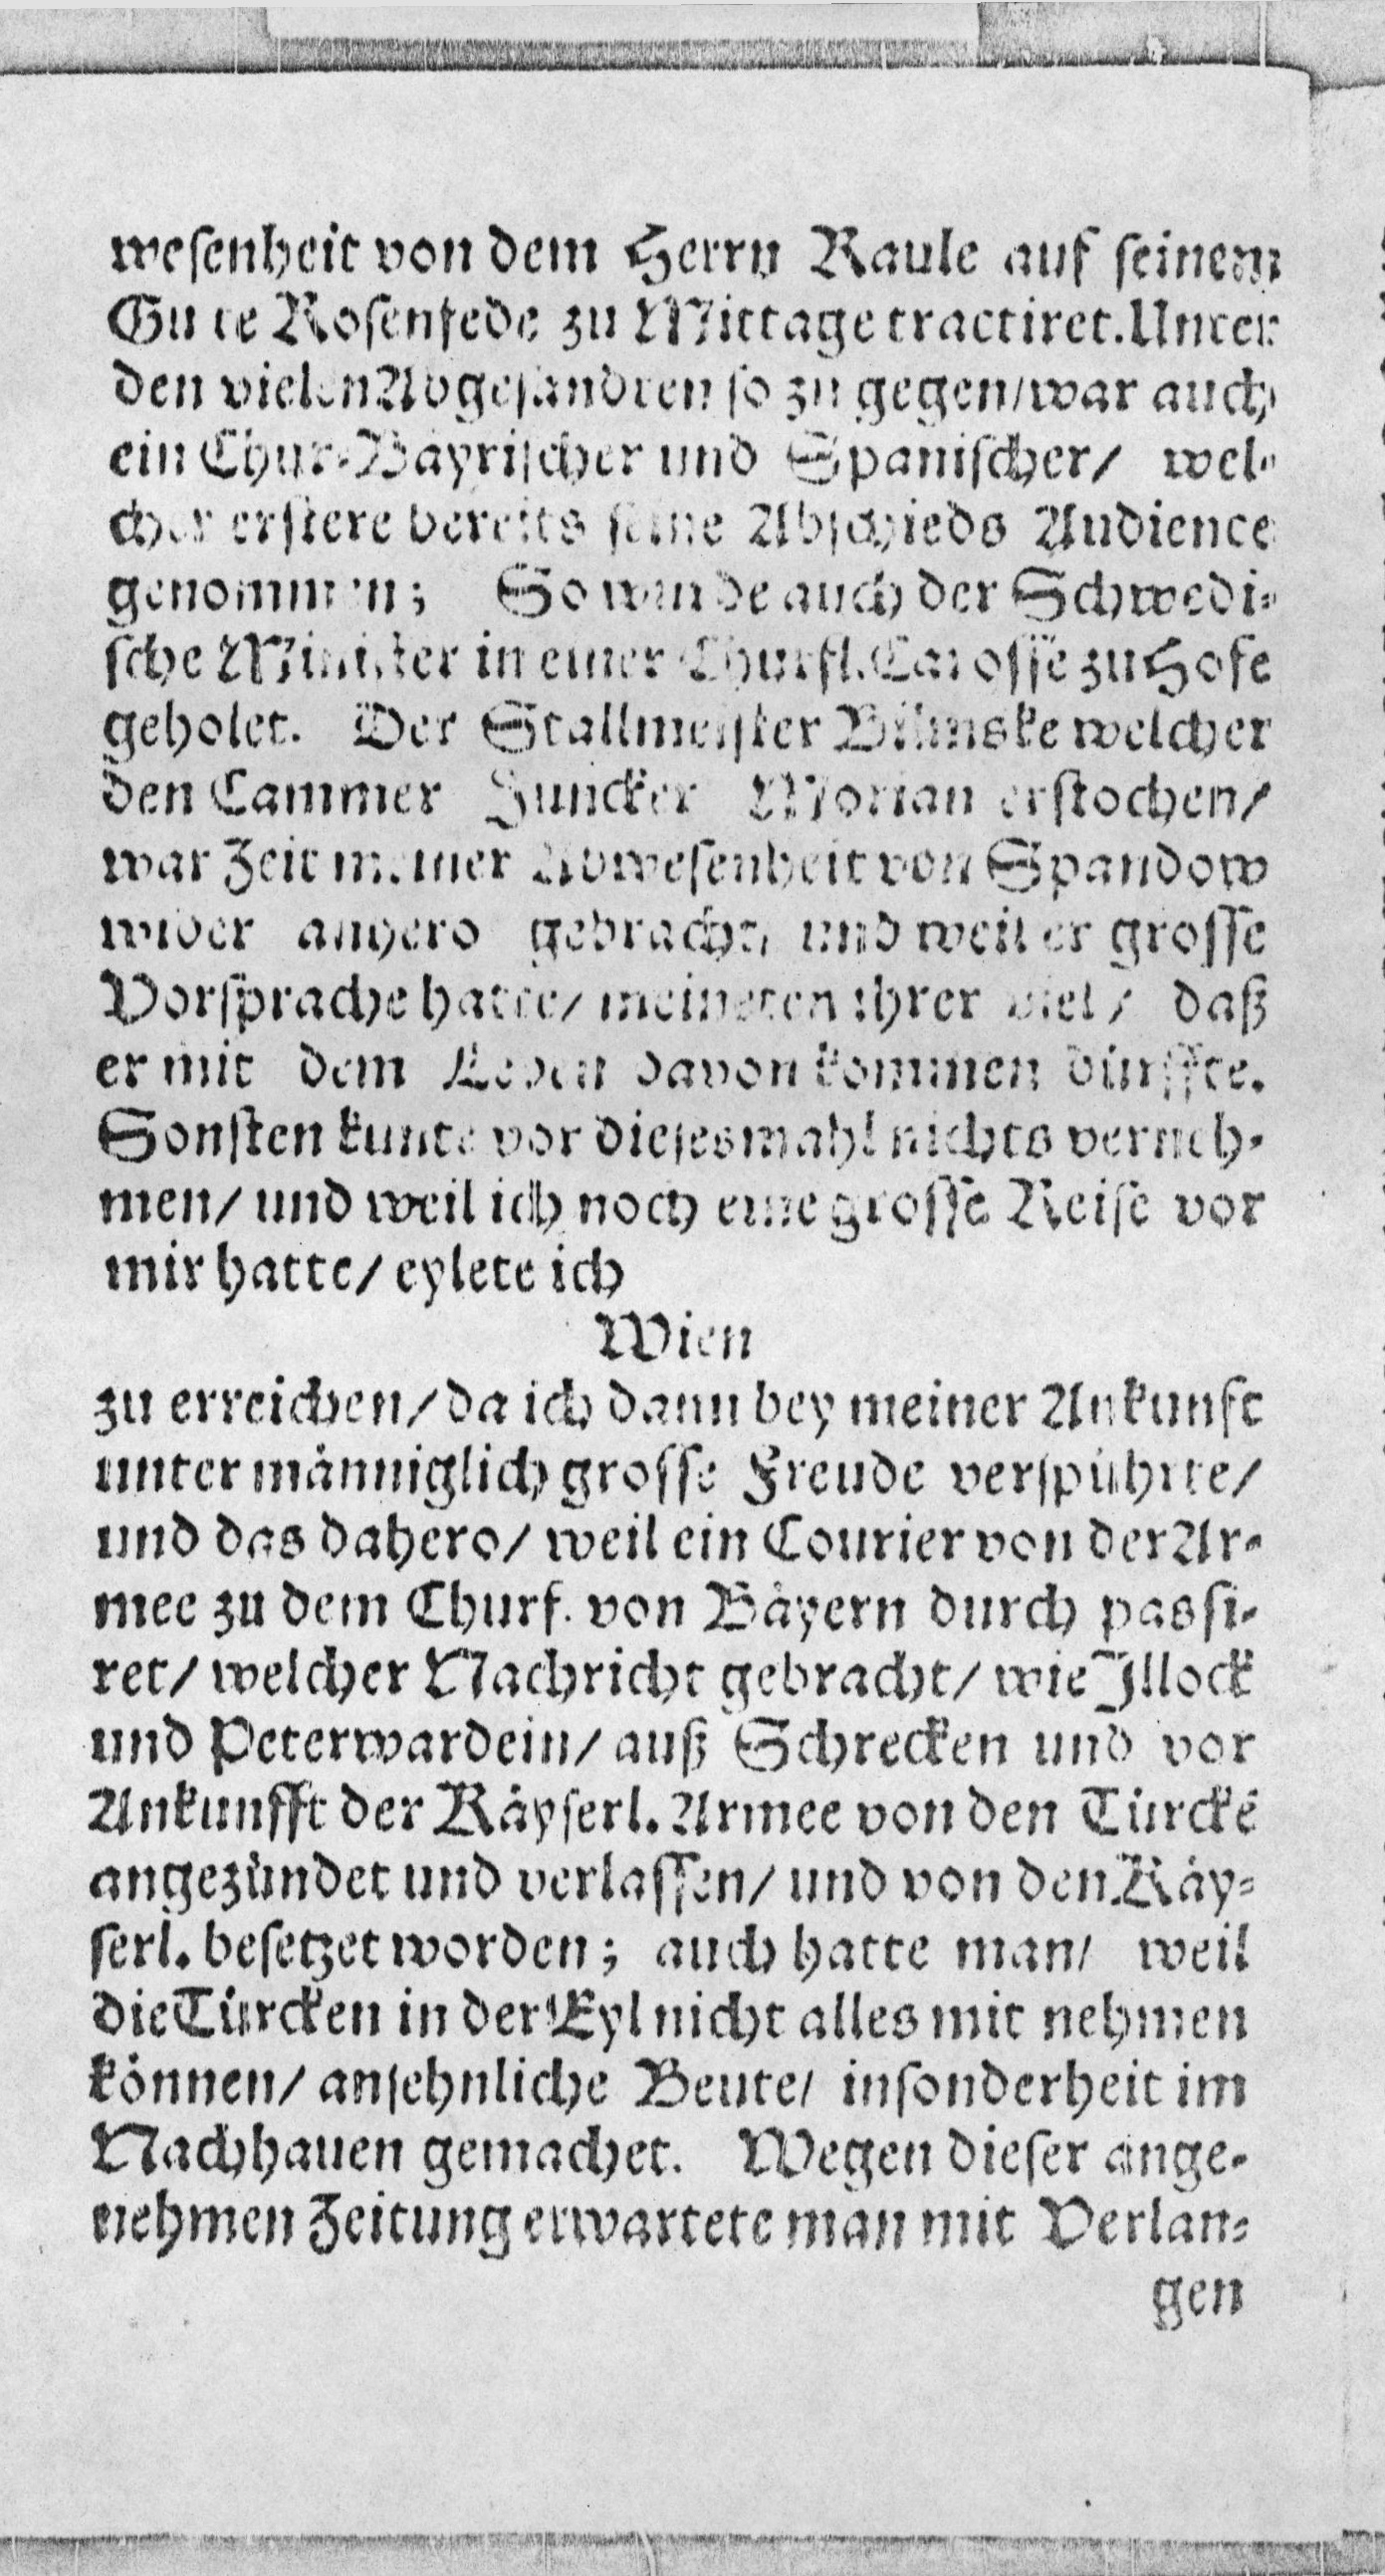 wesenheit von dem Herrn Raule auf seinem
Gute Rosenfede zu Mittage tractiret. Unter
den vielen Abgesandten so zu gegen/ war auch
ein Chur-Bäyrischer und Spanischer/ wel-
cher erstere bereits seine Abschieds Audience
genommen; So wurde auch der Schwedi-
sche Minister in einer Churfl. Carosse zu Hofe
geholet. Der Stallmeister Bilinske welcher
den Cammer Juncker Morian erstochen/
war Zeit meiner Abwesenheit von Spandow
wider anhero gebracht/ und weil er grosse
Vorsprache hatte/ meineten ihrer viel/ daß
er mit dem Leben davon kommen dürffte.
Sonsten kunte vor diesesmahl nichts verneh-
men/ und weil ich noch eine grosse Reise vor
mir hatte/ eylete ich
Wien
zu erreichen/ da ich dann bey meiner Ankunft
unter männiglich grosse Freude verspührte/
und das dahero/ weil ein Courier von der Ar-
mee zu dem Churf. von Bäyern durch passi-
ret/ welcher Nachricht gebracht/ wie Jllock
und Peterwardein/ auß Schrecken und vor
Ankunfft der Käyserl. Armee von den Türckē
angezündet und verlassen/ und von den Käy-
serl. besetzet worden; auch hatte man/ weil
die Türcken in der Eyl nicht alles mit nehmen
können/ ansehnliche Beute/ insonderheit im
Nachhauen gemachet. Wegen dieser ange-
nehmen Zeitung erwartete man mit Verlan-
gen